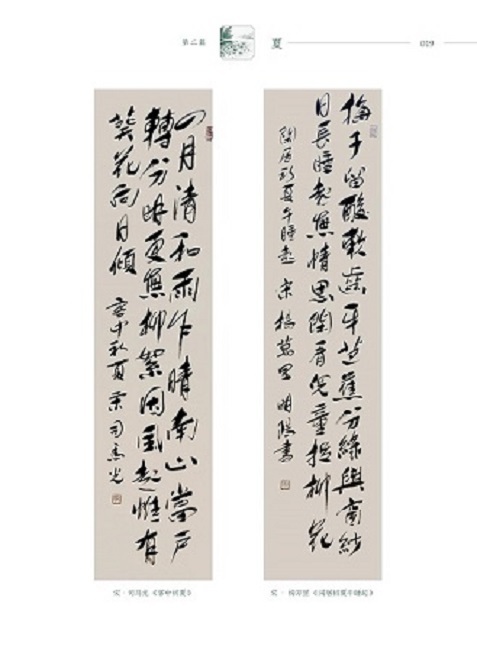 第二篇 夏 029
梅子留酸軟齒牙芭蕉分綠與窗紗
日長睡起無情思閑看兒童捉柳花
閑居初夏午睡起 宋 楊萬里 明陽書
四月清和雨乍晴南山當户
轉分明更無柳絮因風起惟有
葵花向日傾 客中初夏 宋司馬光
宋·司马光《客中初夏》
宋·杨万里《闲居初夏午睡起》